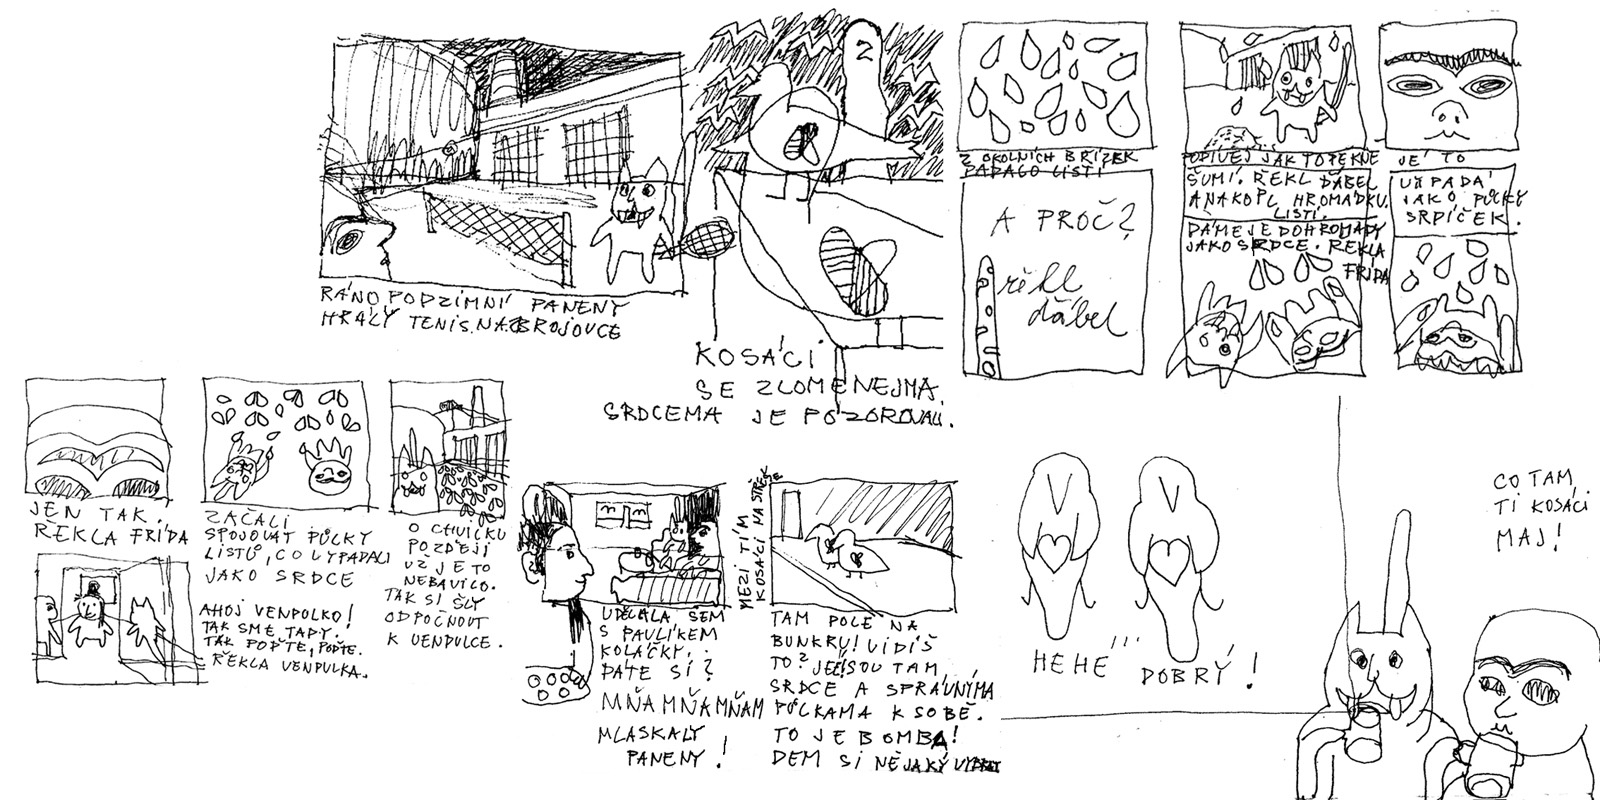 RÁNO PODZIMNÍ PANENY
HRÁLY TENIS. NA ZBROJOVCE
2
KOSÁCI
SE ZLOMENEJMA.
SRDCEMA JE POZOROVALI.
Z OKOLNÍCH BŘÍZEK
PADALO LISTÍ
A PROČ?
řekl
ďábel
PODÍVEJ JAK TO PĚKNE
ŠUMÍ. ŘEKL ĎÁBEL
A NAKOPL HROMÁDKU
LISTÍ.
DÁME JE DOHROMADY
JAKO SRDCE. ŘEKLA
FRÍDA
JÉ TO
VYPADÁ
JAKO PŮLKY
SRDÍČEK.
JEN TAK,
ŘEKLA FRÍDA
ZAČALI
SPOJOVAT PŮLKY
LISTŮ, CO VYPADALI
JAKO SRDCE
O CHVILČKU
POZDĚJI
UŽ JE TO
NEBAVILO.
TAK SI ŠLY
ODPOČNOUT
K VENDULCE.
AHOJ VENDULKO!
TAK SME TADY.
TAK POĎTE, POĎTE.
ŘEKLA VENDULKA.
UDĚLALA SEM
S PAVLÍKEM
KOLÁČKY.
DÁTE SI?
MŇAMŇAMŇAM
MLASKALY
PANENY!
MEZI TÍM
KOSÁCI NA STŘEŠE
TAM POLE NA
BUNKRU! VIDÍŠ
TO? JEJ! SOU TAM
SRDCE A SPRÁVNÝMA
PŮLKAMA K SOBĚ.
TO JE BOMBA!
DEM SI NĚJAKÝ
HEHÉ
DOBRÝ!
CO TAM
TI KOSÁCI
MAJ!